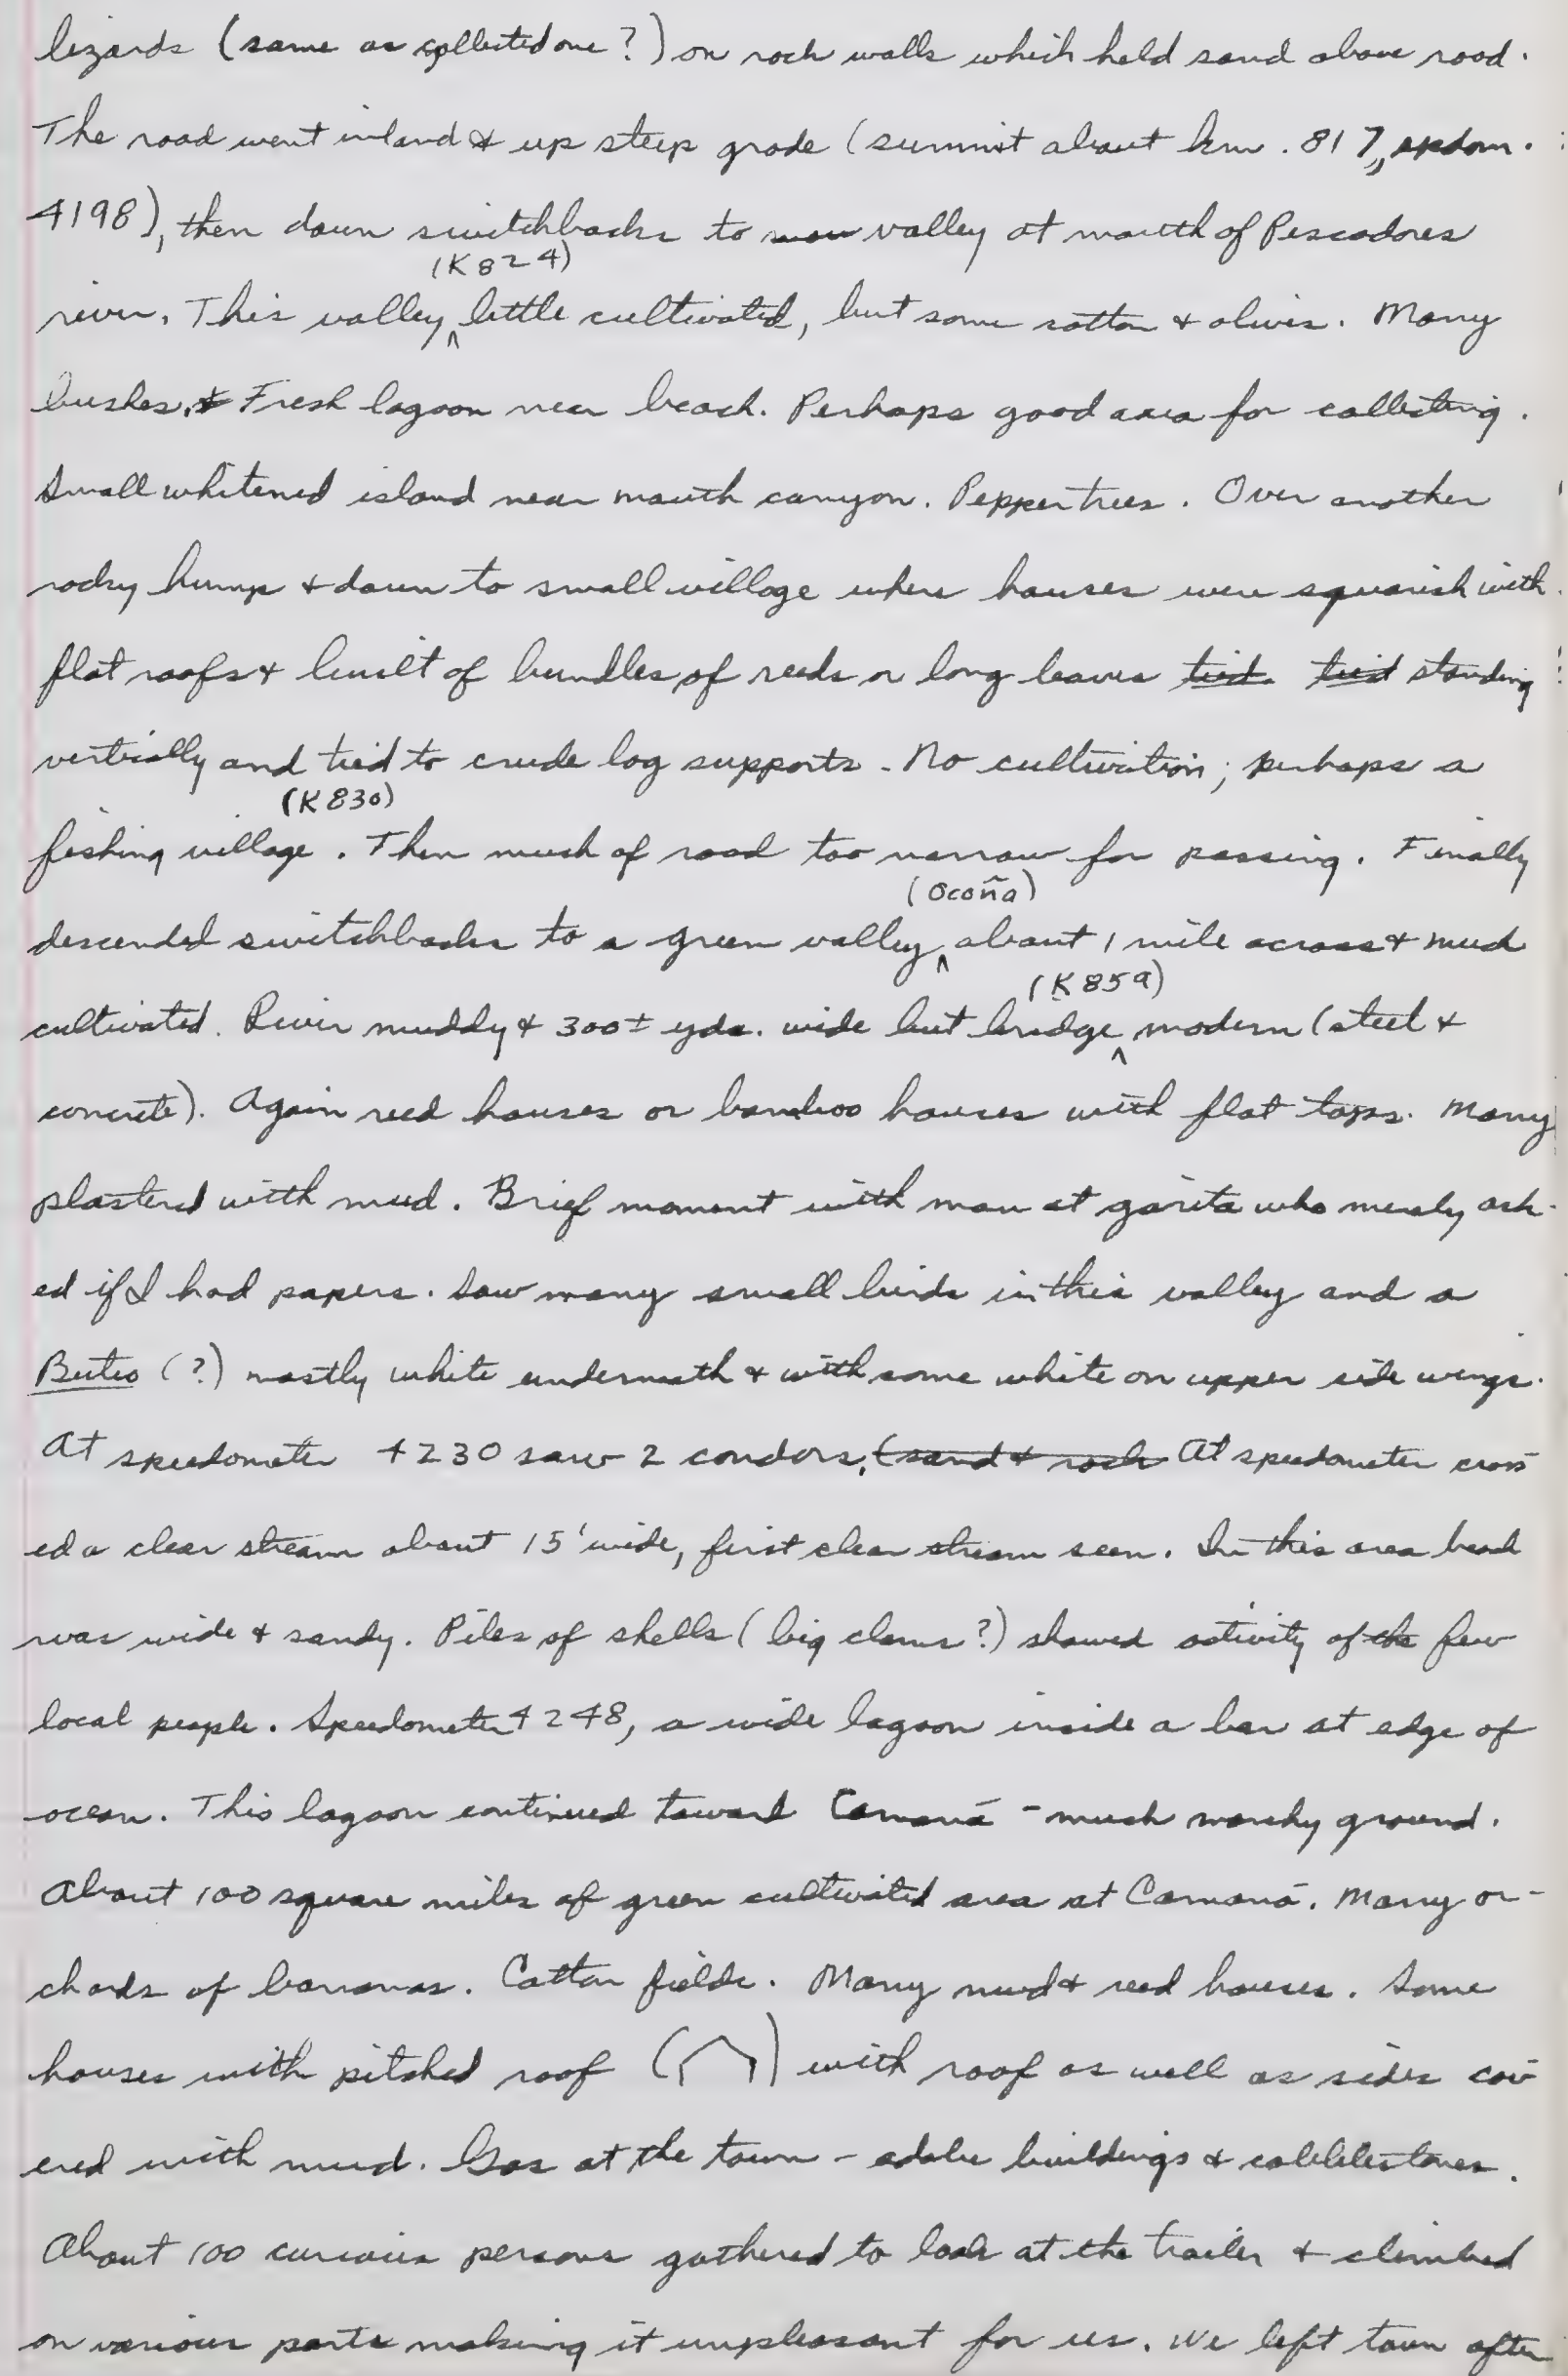 lizards (same as collected one?) on rock walls which held sand above road.
The road went inland & up steep grade (summit about km. 817, spdom.
4198), then down switchbacks to valley at mouth of Pescadores
(K824)
river. This valley ^ little cultivated, but some cotton & olives. Many
bushes. Fresh lagoon near beach. Perhaps good area for collecting.
Small whitened island near mouth canyon. Pepper trees. Over another
rocky hump & down to small village where houses were squarish with
flat roofs & built of bundles of reeds or long leaves tied. tied standing
vertically and tied to crude log supports. No cultivation; perhaps a
(K830)
fishing village. Then much of road too narrow for passing. Finally
(Ocoña)
descended switchbacks to a green valley ^ about 1 mile across & much
(K859)
cultivated. River muddy & 300± yds. wide but bridge ^ modern (steel &
concrete). Again reed houses or bamboo houses with flat tops. Many
plastered with mud. Brief moment with man at garita who merely ask-
ed if I had papers. Saw many small birds in this valley and a
Buteo (?) mostly white underneath & with some white on upper side wings.
At speedometer 4230 saw 2 condors. (sand & rock At speedometer cross-
ed a clear stream about 15' wide, first clear stream seen. In this area beach
was wide & sandy. Piles of shells (big clams?) showed activity of the few
local people. Speedometer 4248, a wide lagoon inside a bar at edge of
ocean. This lagoon continued toward Camaná - much marshy ground.
About 100 square miles of green cultivated area at Camaná. Many or-
chards of bananas. Cotton fields. Many mud & reed houses. Some
houses with pitched roof ( ) with roof as well as sides cov-
ered with mud. Gas at the town - adobe buildings & cobblestones.
About 100 curious persons gathered to look at the trailer & climbed
on various parts making it unpleasant for us. We left town after